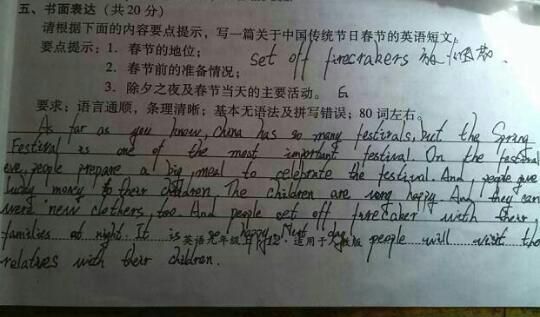 五、书面表达（共20分）
请根据下面的内容要点提示，写一篇关于中国传统节日春节的英语短文。
要点提示：1．春节的地位；
set off firecrakers
2．春节前的准备情况；
3．除夕之夜及春节当天的主要活动。
要求：语言通顺，条理清晰；基本无语法及拼写错误；80词左右。
As far as you know, China has so many festivals, but the Spring
Festival is one of the most important festival. On the festival
eve, people prepare a big meal to celebrate the festival. And people give
lucky money to their children. The children are very happy. And they can
were new clothers, too. And people set off firecaker with their
families at night. It is so happy. Next day people will visit the
英语九年级 适用于
relatives with their children.